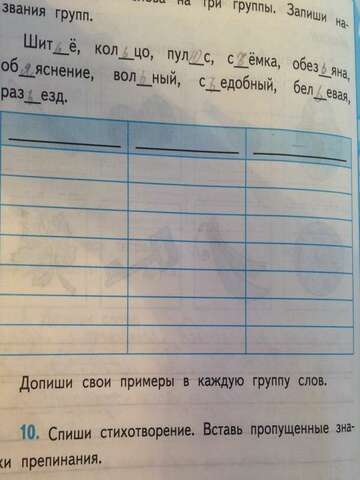 на три группы. Запиши на-
звания групп.
Шит_ь_ё, кол_ь_цо, пул_ь_с, с_ъ_ёмка, обез_ь_яна,
об_ъ_яснение, вол_ь_ный, с_ъ_едобный, бел_ь_евая,
раз_ъ_езд.
Допиши свои примеры в каждую группу слов.
10. Спиши стихотворение. Вставь пропущенные зна-
ки препинания.